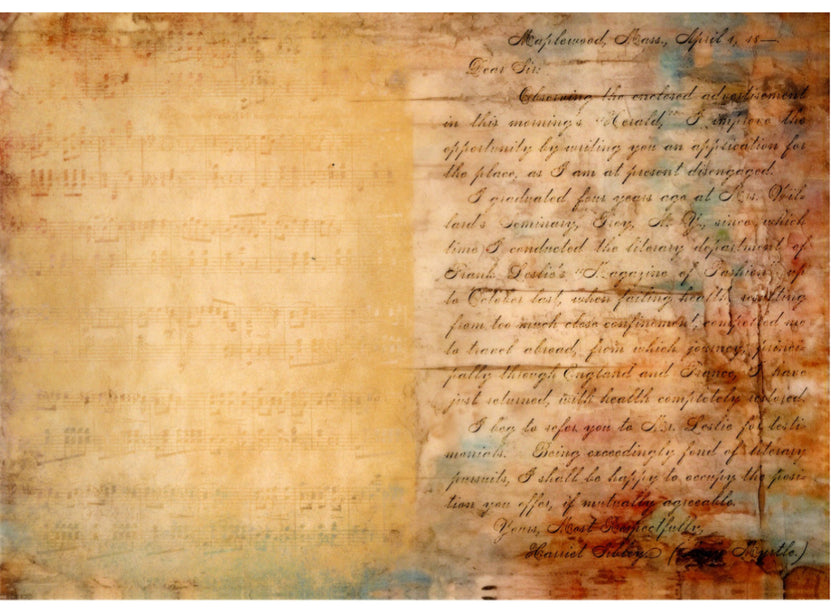 Maplewood, Mass., April 1, 18—
Dear Sir:
Observing the enclosed advertisement
in this morning's "Herald," I improve the
opportunity by writing you an application for
the place, as I am at present disengaged.
I graduated four years ago at Mrs. Wil-
lard's Seminary, Troy, N. Y., since which
time I conducted the literary department of
Frank Leslie's "Magazine of Fashion," up
to October last, when failing health, resulting
from too much close confinement, compelled me
to travel abroad, from which journey, princi-
pally through England and France, I have
just returned, with health completely restored.
I beg to refer you to Mr. Leslie for testi-
monials. Being exceedingly fond of literary
pursuits, I shall be happy to occupy the posi-
tion you offer, if mutually agreeable.
Yours, Most Respectfully,
Harriet Sibley. ( Myrtle.)